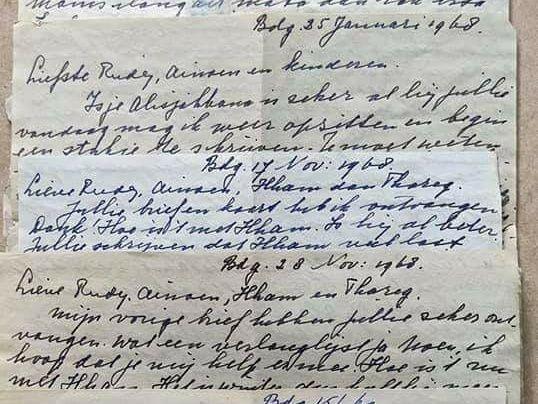 Bdg. 25 Januari 1968.
Liefste Rudy, Ainoen en kinderen.
Isje Alisjahbana is seker al bij jullie
vandaag mag ik weer opzitten en begin
een stukkie te schrijven. Je moet weten
Bdg. 17 Nov: 1968.
Lieve Rudy, Ainoen, Ilham dan Thareq.
Jullie briefen kaart heb ik ontvangen
Dank! Hoe is't met Ilham. Is hij al beter
Jullie schrijven dat Ilham veel last
Bdg. 28 Nov: 1968.
Lieve Rudy, Ainoen, Ilham en Thareq.
Mijn vorige brief hebben jullie seker ont-
vangen. Wat een verlanglijst ja Noen, ik
hoop dat je mij helpt ermee. Hoe is't nu
met Ilham.
Bdg.